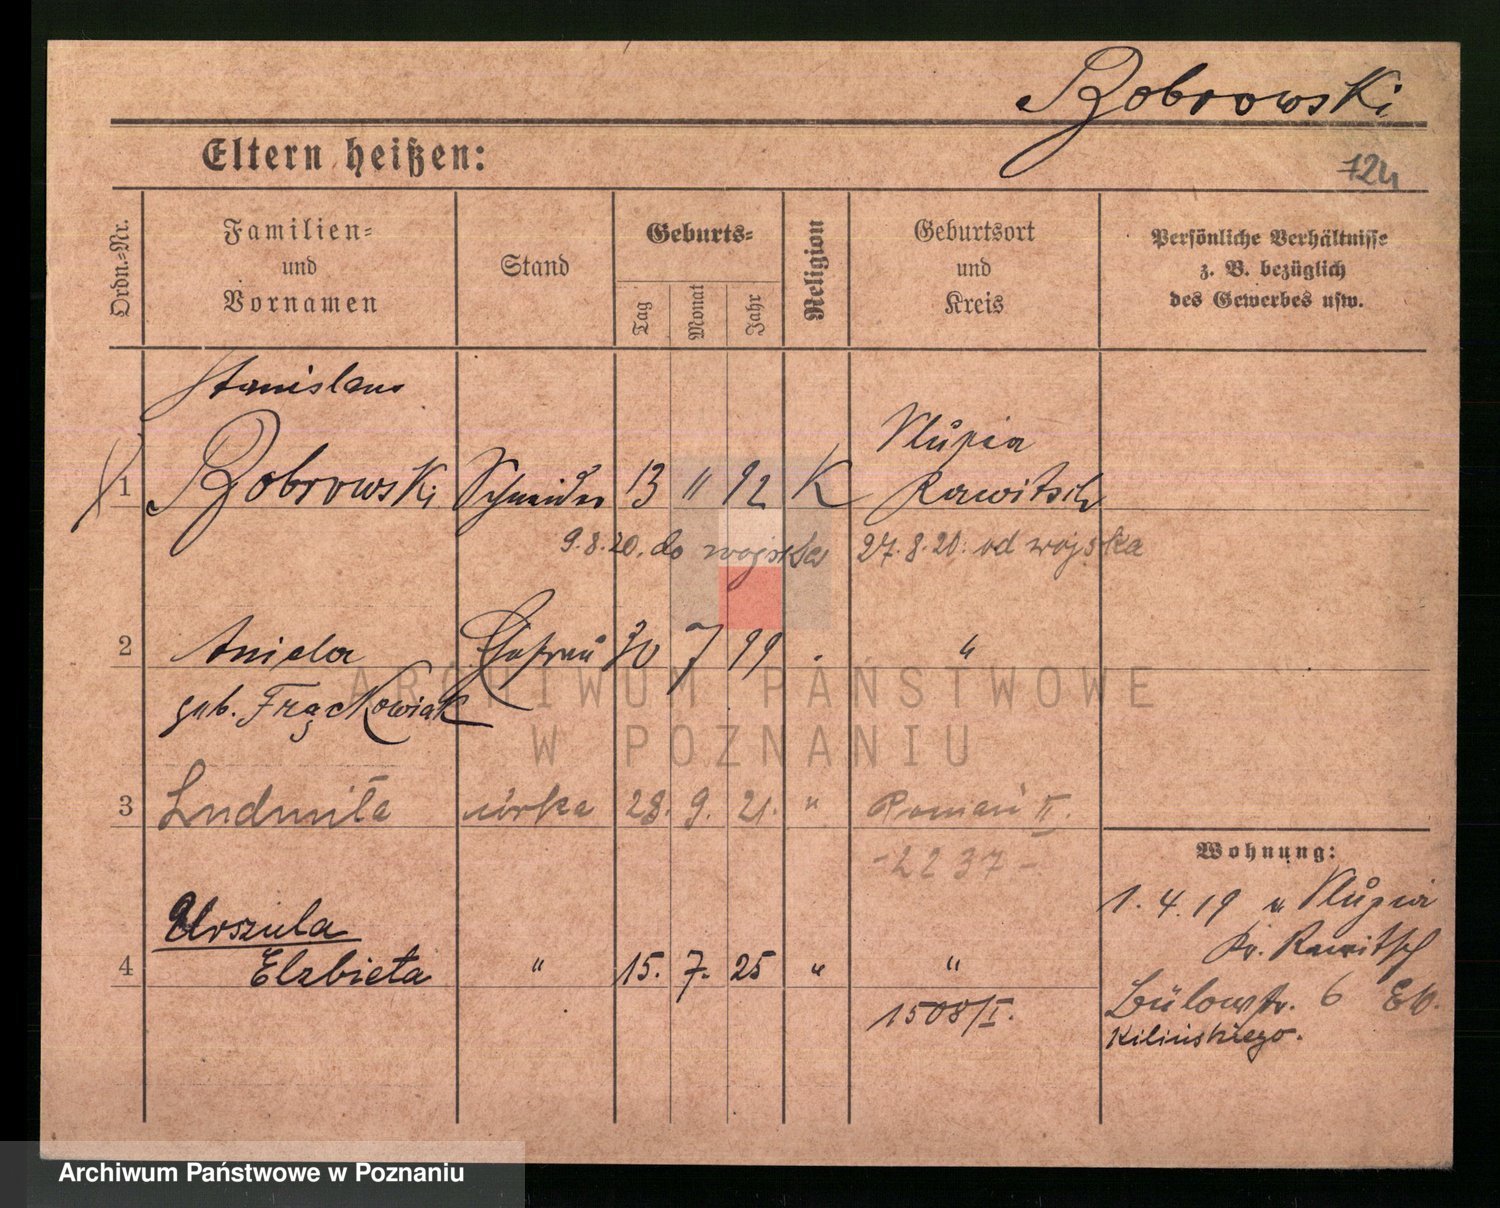 Bobrowski
Eltern heißen:
124
Ordn.-Nr.
Familien-
und
Vornamen
Stand
Geburts-
Tag
Monat
Jahr
Religion
Geburtsort
und
Kreis
Persönliche Verhältnisse
z. B. bezüglich
des Gewerbes usw.
Stanislaus
1 Bobrowski Schneider 13 11 92 K Slupia
Rawitsch
9.8.20. do wojska 27.8.20. od wojska
2 Aniela Ehefrau 30 7 99 "
geb. Frąckowiak
3 Ludmiła córka 28. 9. 21. " Poznań II.
-2237-
Urszula
4 Elzbieta " 15. 7. 25 " "
1508/I.
Wohnung:
1. 4. 19 v Slupia
Kr. Rawitsch
Bülowstr. 6
Kilińskiego.
ARCHIWUM PAŃSTWOWE
W POZNANIU
Archiwum Państwowe w Poznaniu